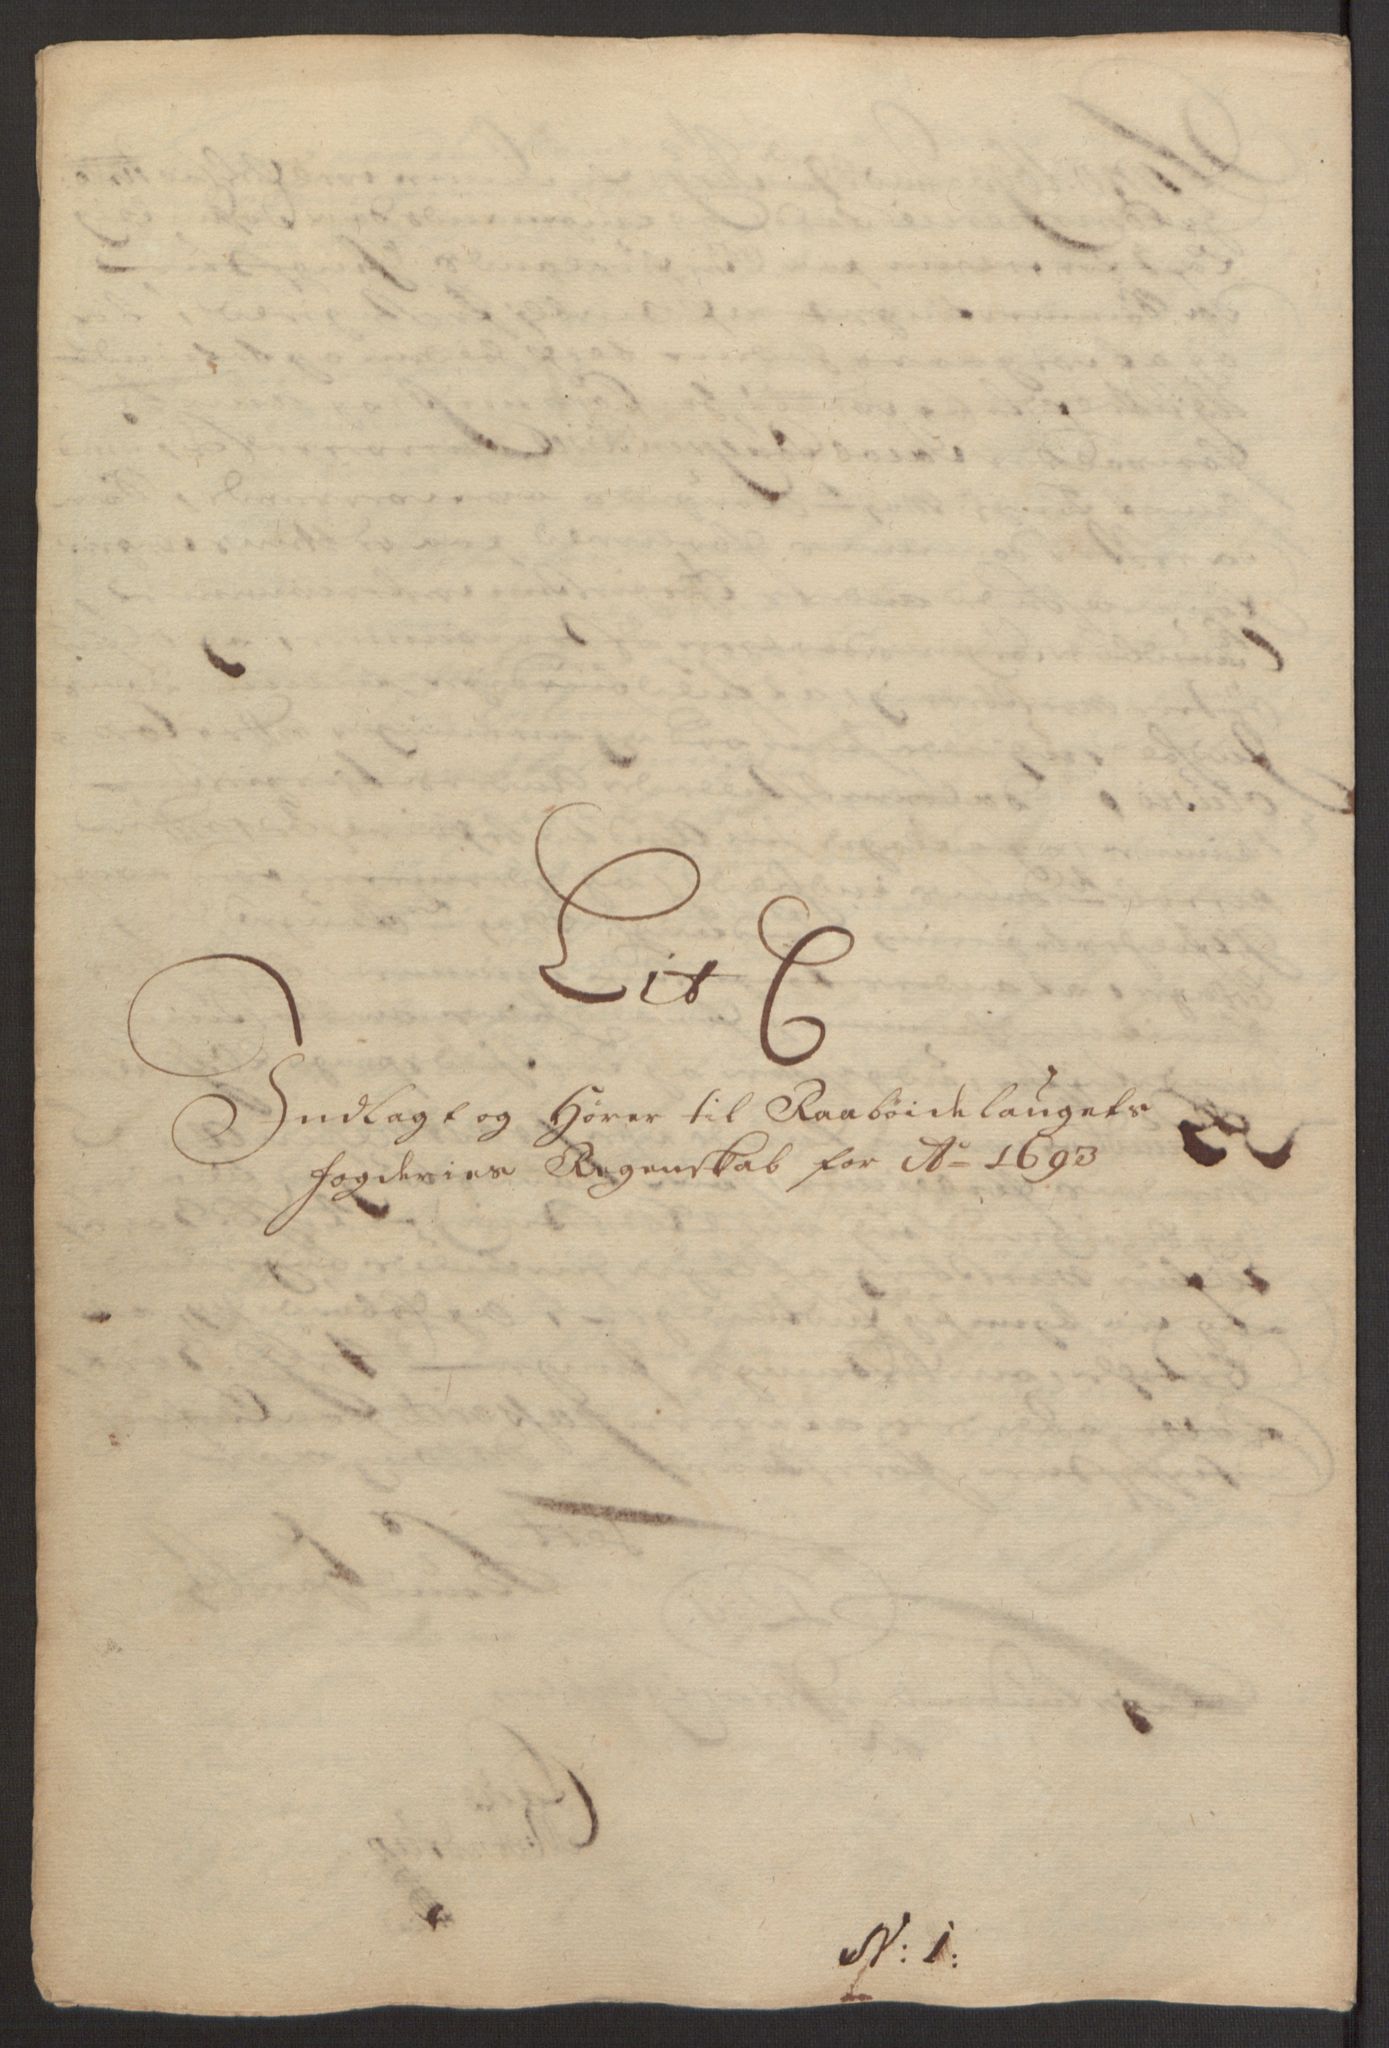 Lit C
Indlagt og Hører til Raabøidelaugets
fogderies Regenskab for Ao 1693
N: 1: